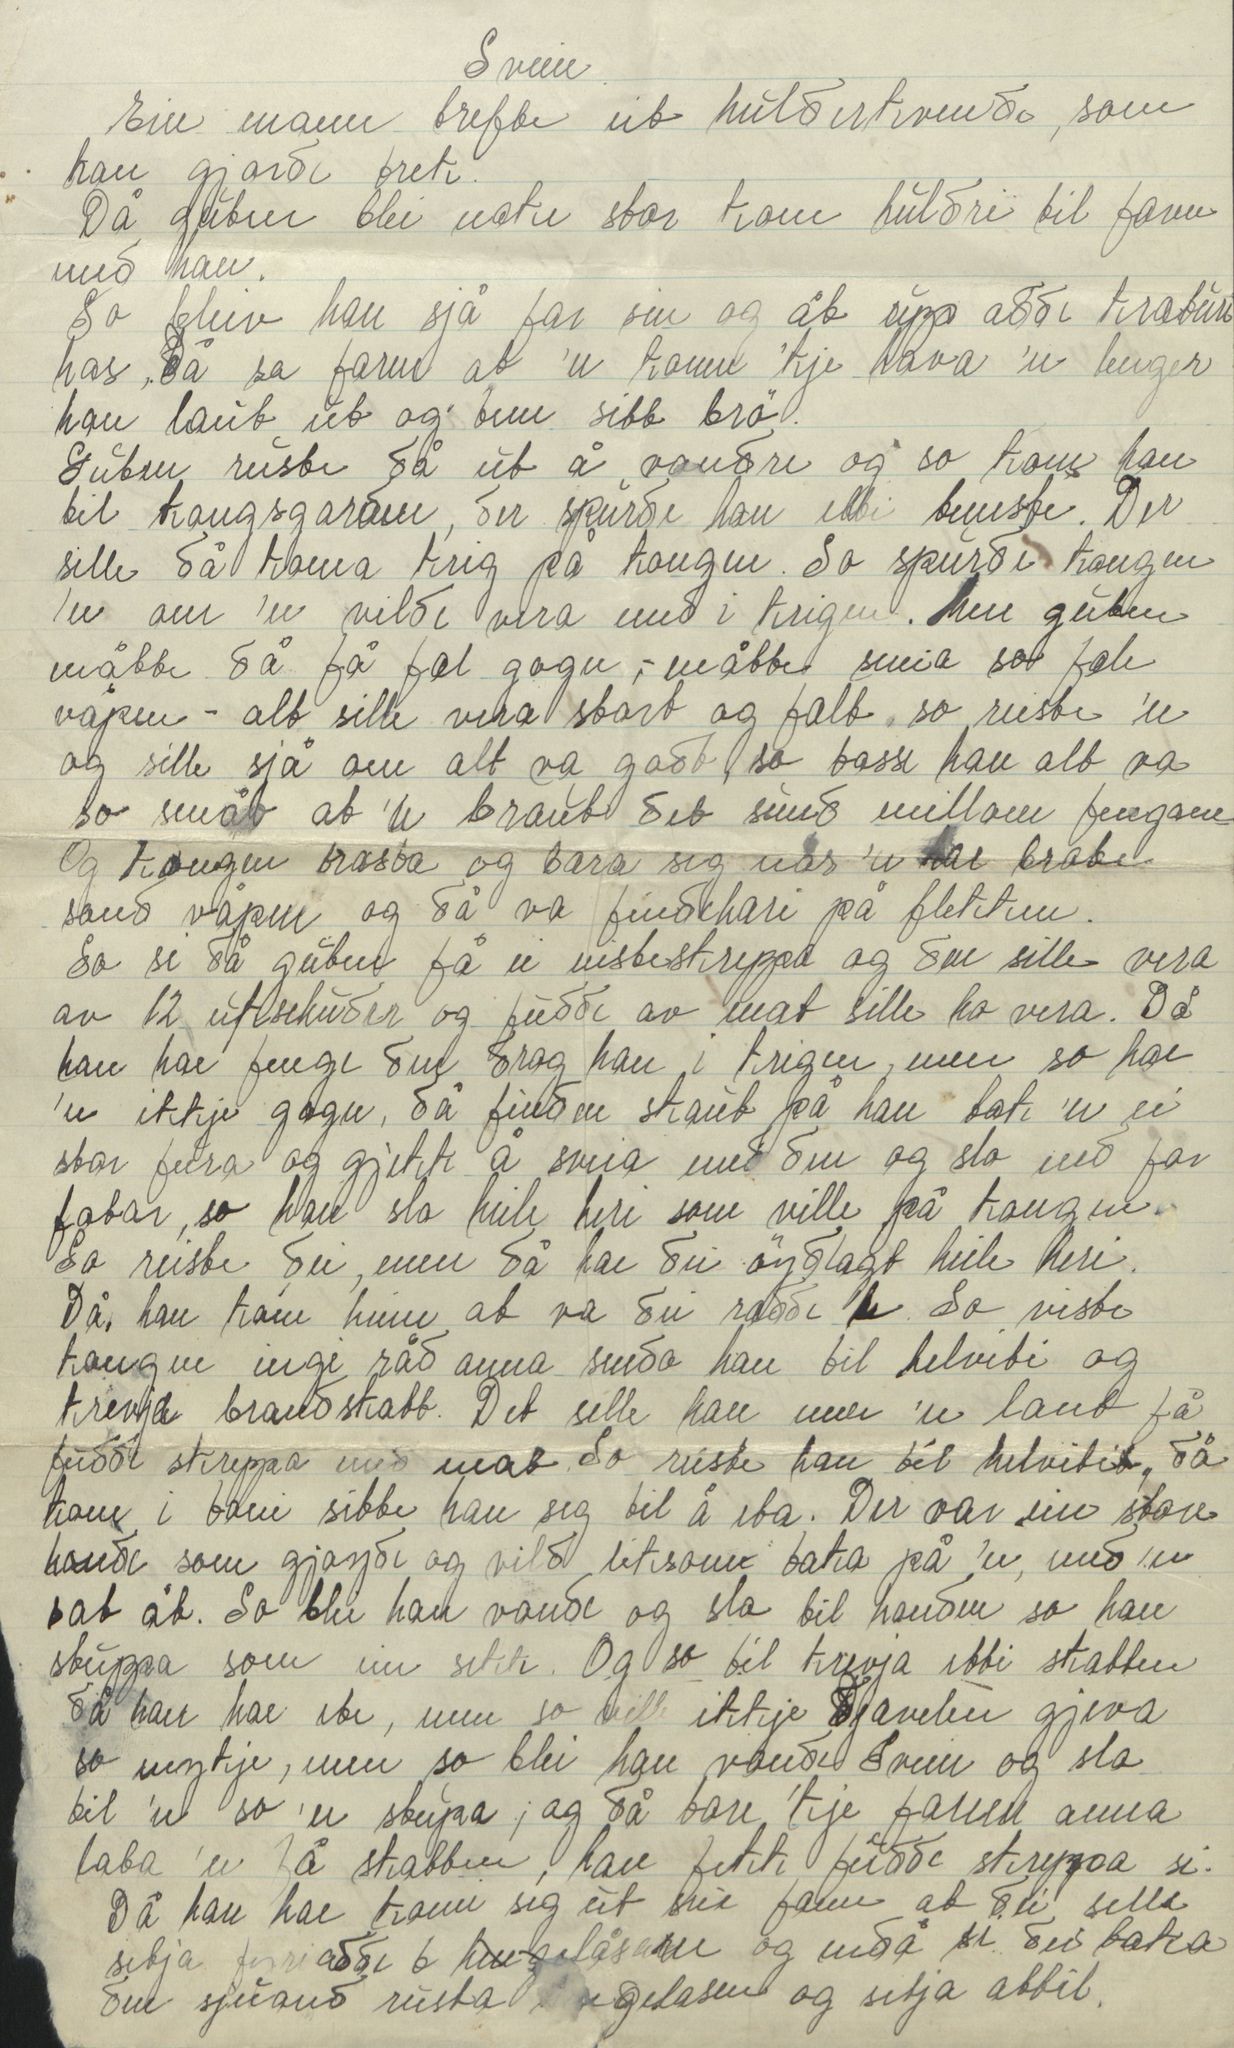 Svein
Ein mann trefte eit huldrekvende, som
han gjorde trek.
Då guten blei noko stor kom huldri til faren
með han.
So bleiv han sjå far sin og åt upp aððe kratúri
has, ðå sa faren at 'n kann 'tje hava 'n lenger
han laut út og ten sitt brö.
Guten reiste ðå út å vandre og so kom han
til kongsgarðen, ðer spurðe han etti tenste. Der
sille ðå koma krig på kongen. So spurðe kongen
'n om 'n vilde vera með i krigen. Men guten
måtte ðå få fæl gogn, - måtte smia so fæle
våpen - alt sille vera stort og fælt, so reiste 'n
og sille sjå om alt va gott, so tosse han alt va
so smått at 'n braut det sund millom fingane
Og kongen trasta og bara seg når 'n hae brote
sond våpen og ðå va finðehæri på flekken.
So si ðå guten få ei nistesreppa og ðen sille vera
av 12 utsehúðer og fudde av mat sille ho vera. Då
han hae fenge ðen ðrog han i krigen, men so hae
'n ikkje gogn, ðå finðen skaut på han tok 'n ei
stor fura og gjekk å svia með ðen og slo neð for
fotar, so han slo heile heri som ville på kongen.
So reiste ðei, men ðå hae ðei öyðlagt heile heri.
Då han kom heim at va ðei rædde So viste
kongen ingi råð anna senda han til helviti og
krevja brandskatt. Det sille han men 'n laut få
fudde skreppa með mat. So reiste han til helvitis, ðå
kom i toni sitte han seg til å eta. Der var ein store
hunde som gjøyðe og vild liksom taka på 'n, með 'n
sat åt. So blei han vonde og slo til hunden so han
stúppa som ein sekk. Og so til krevja etti skatten
ðå han hae ete, men so ville ikkje Djævelen gjeva
so mykje, men so blei han vonde Svein og slo
til 'n so 'n stupa; og ðå tore 'kje fannen anna
lata 'n få skatten, han fekk fudde skreppa si.
Då han hae komi seg út sae fann at ðei sille
setja forriadde 6 hengelåsane og nedå si ðei taka
ðen sjúanð rusta gelåsen og setja attil.